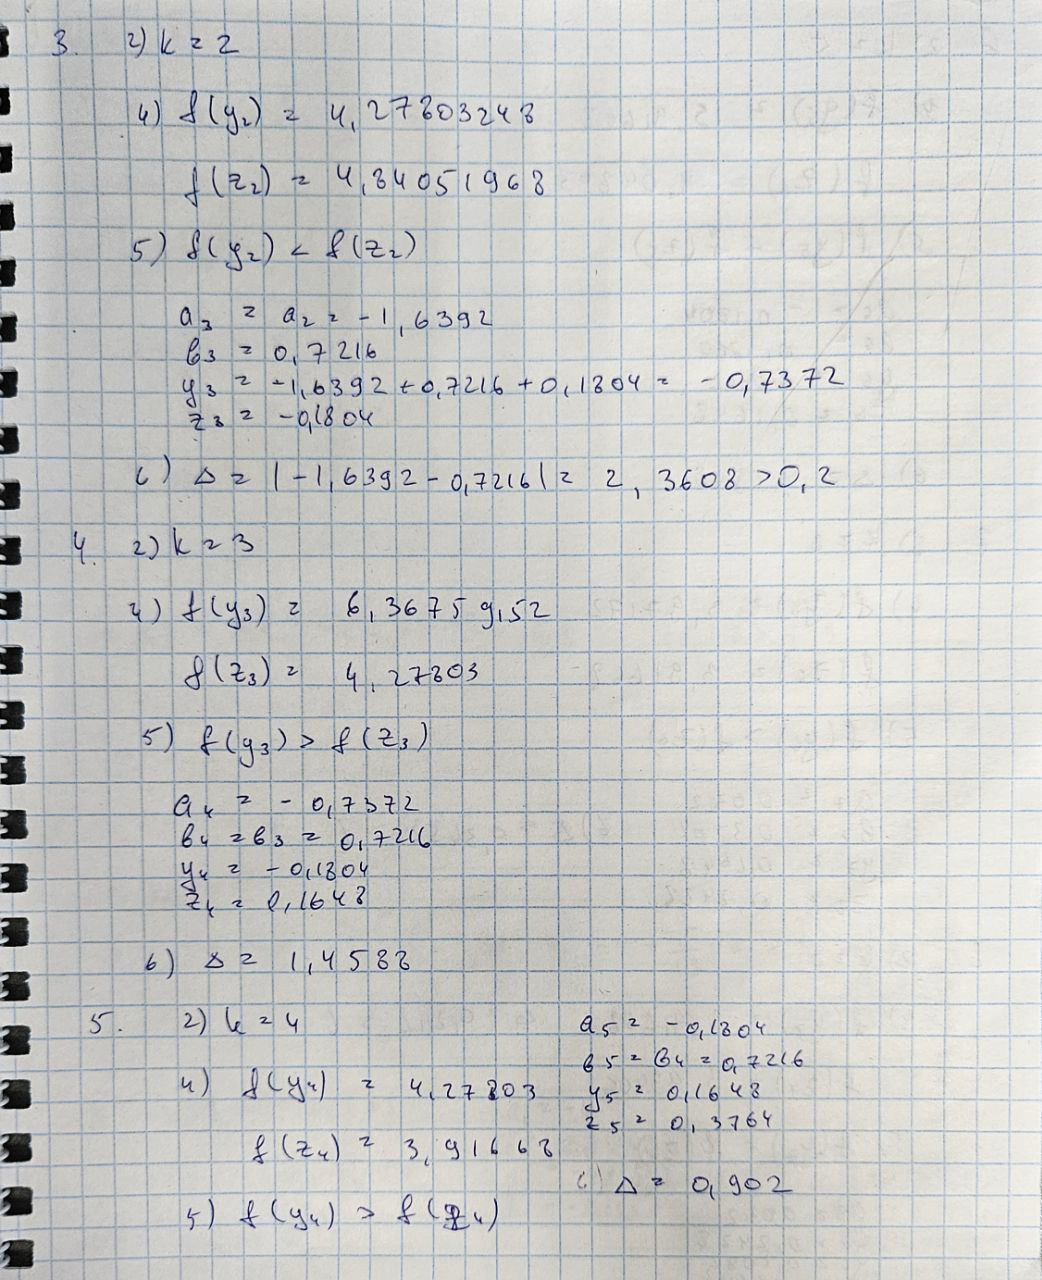 3. 2) k = 2
4) f(y₂) = 4,27803248
f(z₂) = 4,84051968
5) f(y₂) < f(z₂)
a₃ = a₂ = -1,6392
b₃ = 0,7216
y₃ = -1,6392 + 0,7216 + 0,1804 = -0,7372
z₃ = -0,1804
6) Δ = |-1,6392 - 0,7216| = 2,3608 > 0,2
4. 2) k = 3
4) f(y₃) = 6,36759,52
f(z₃) = 4,27803
5) f(y₃) > f(z₃)
a₄ = -0,7372
b₄ = b₃ = 0,7216
y₄ = -0,1804
z₄ = 0,1648
6) Δ = 1,4588
5. 2) k = 4
4) f(y₄) = 4,27803
f(z₄) = 3,91668
5) f(y₄) > f(z₄)
a₅ = -0,1804
b₅ = b₄ = 0,7216
y₅ = 0,1648
z₅ = 0,3764
6) Δ = 0,902